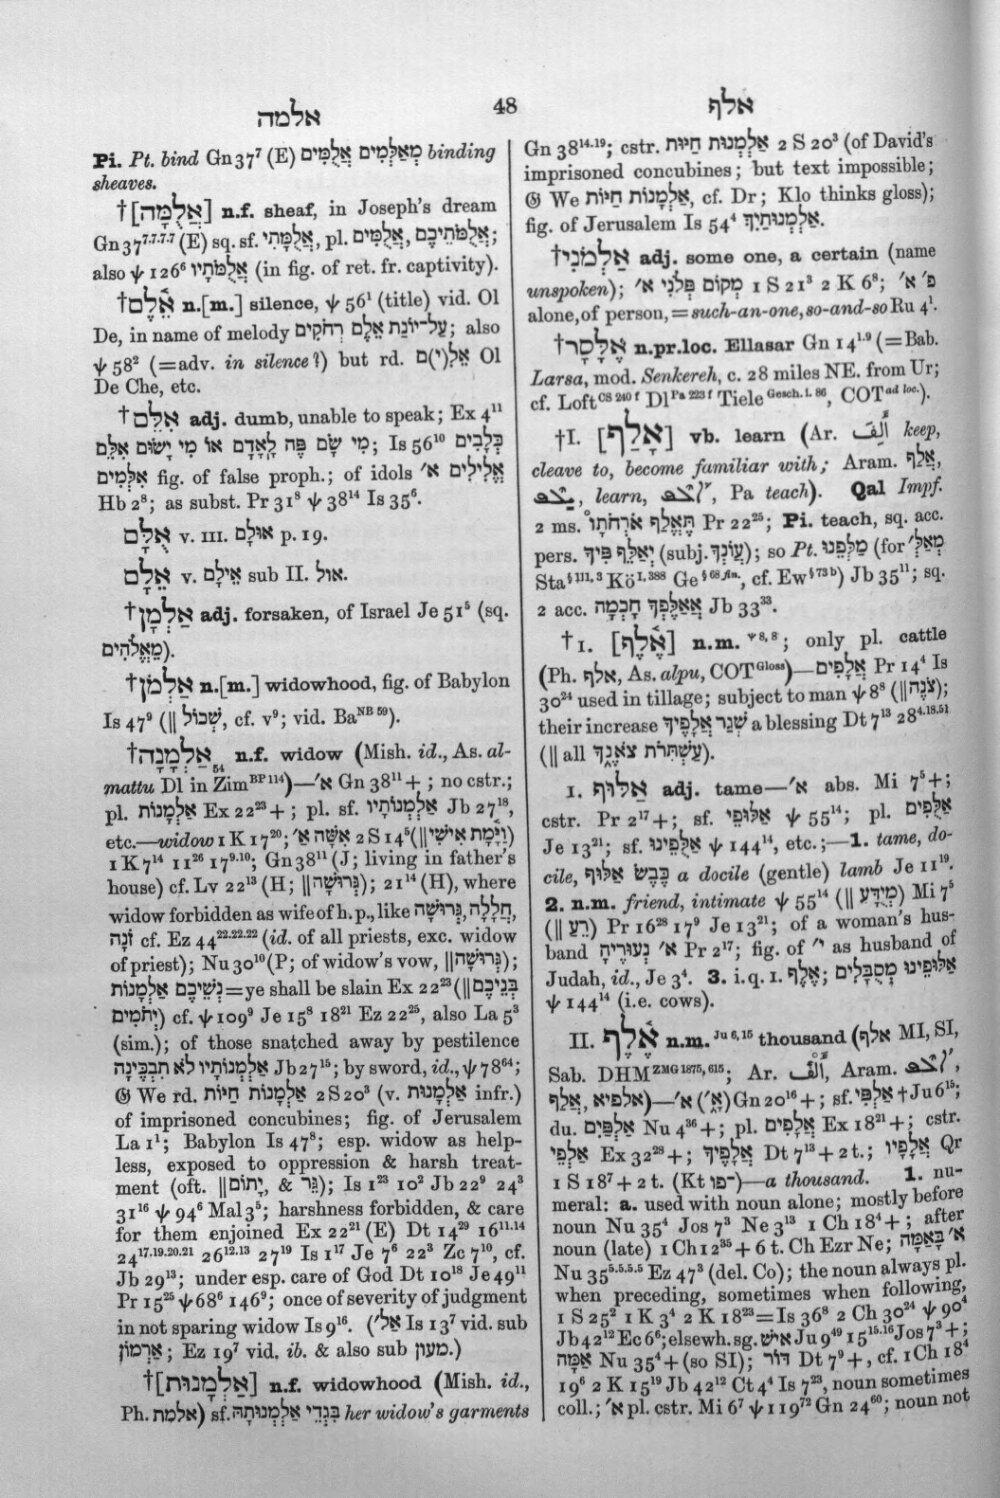 אלמה
48
אלף
Pi. Pt. bind Gn 37⁷ (E) מְאַלְּמִים אֲלֻמִּים binding
sheaves.
†[אֲלֻמָּה] n.f. sheaf, in Joseph's dream
Gn 37⁷·⁷·⁷·⁷ (E) sq. sf. אֲלֻמָּתִי, pl. אֲלֻמִּים, אֲלֻמֹּתֵיכֶם;
also ψ 126⁶ אֲלֻמֹּתָיו (in fig. of ret. fr. captivity).
†אֵלֶם n.[m.] silence, ψ 56¹ (title) vid. Ol
De, in name of melody עַל־יוֹנַת אֵלֶם רְחֹקִים; also
ψ 58² (=adv. in silence?) but rd. אֵל(י)ם Ol
De Che, etc.
†אִלֵּם adj. dumb, unable to speak; Ex 4¹¹
מִי שָׂם פֶּה לָאָדָם אוֹ מִי יָשׂוּם אִלֵּם; Is 56¹⁰ כְּלָבִים
אִלְּמִים fig. of false proph.; of idols אֱלִילִים א׳
Hb 2⁸; as subst. Pr 31⁸ ψ 38¹⁴ Is 35⁶.
אֻלָם v. III. אוּלָם p. 19.
אֵלָם v. אֵילָם sub II. אול.
†אַלְמָן adj. forsaken, of Israel Je 51⁵ (sq.
מֵאֱלֹהִים).
†אַלְמֹן n.[m.] widowhood, fig. of Babylon
Is 47⁹ (‖ שְׁכוֹל, cf. v⁹; vid. Ba^NB 59).
†אַלְמָנָה₅₄ n.f. widow (Mish. id., As. al-
mattu Dl in Zim^BP 114)—א׳ Gn 38¹¹ + ; no cstr.;
pl. אַלְמָנוֹת Ex 22²³ + ; pl. sf. אַלְמְנוֹתָיו Jb 27¹⁵,
etc.—widow 1 K 17²⁰; אִשָּׁה א׳ 2 S 14⁵ (‖וַיָּמָת אִישִׁי)
1 K 7¹⁴ 11²⁶ 17⁹·¹⁰; Gn 38¹¹ (J; living in father's
house) cf. Lv 22¹³ (H; ‖גְּרוּשָׁה); 21¹⁴ (H), where
widow forbidden as wife of h. p., like חֲלָלָה, גְּרוּשָׁה,
זֹנָה cf. Ez 44²²·²²·²² (id. of all priests, exc. widow
of priest); Nu 30¹⁰ (P; of widow's vow, ‖גְּרוּשָׁה);
נְשֵׁיכֶם אַלְמָנוֹת=ye shall be slain Ex 22²³ (‖בְּנֵיכֶם
יְתֹמִים) cf. ψ 109⁹ Je 15⁸ 18²¹ Ez 22²⁵, also La 5³
(sim.); of those snatched away by pestilence
אַלְמְנוֹתָיו לֹא תִבְכֶּינָה Jb 27¹⁵; by sword, id., ψ 78⁶⁴;
𝔊 We rd. אַלְמָנוֹת חַיּוֹת 2 S 20³ (v. אַלְמָנוּת infr.)
of imprisoned concubines; fig. of Jerusalem
La 1¹; Babylon Is 47⁸; esp. widow as help-
less, exposed to oppression & harsh treat-
ment (oft. ‖יָתוֹם, & גֵּר); Is 1²³ 10² Jb 22⁹ 24³
31¹⁶ ψ 94⁶ Mal 3⁵; harshness forbidden, & care
for them enjoined Ex 22²¹ (E) Dt 14²⁹ 16¹¹·¹⁴
24¹⁷·¹⁹·²⁰·²¹ 26¹²·¹³ 27¹⁹ Is 1¹⁷ Je 7⁶ 22³ Zc 7¹⁰, cf.
Jb 29¹³; under esp. care of God Dt 10¹⁸ Je 49¹¹
Pr 15²⁵ ψ 68⁶ 146⁹; once of severity of judgment
in not sparing widow Is 9¹⁶. (אל׳ Is 13⁷ vid. sub
אַרְמוֹן; Ez 19⁷ vid. ib. & also sub מעון.)
†[אַלְמָנוּת] n.f. widowhood (Mish. id.,
Ph. אלמת) sf. בִּגְדֵי אַלְמְנוּתָהּ her widow's garments
Gn 38¹⁴·¹⁹; cstr. אַלְמְנוּת חַיּוּת 2 S 20³ (of David's
imprisoned concubines; but text impossible;
𝔊 We אַלְמָנוֹת חַיּוֹת, cf. Dr; Klo thinks gloss);
fig. of Jerusalem Is 54⁴ אַלְמְנוּתַיִךְ.
†אַלְמֹנִי adj. some one, a certain (name
unspoken); מְקוֹם פְּלֹנִי א׳ 1 S 21³ 2 K 6⁸; פ׳ א׳
alone, of person, =such-an-one, so-and-so Ru 4¹.
†אֶלָּסָר n.pr.loc. Ellasar Gn 14¹·⁹ (=Bab.
Larsa, mod. Senkereh, c. 28 miles NE. from Ur;
cf. Loft^CS 240 f Dl^Pa 223 f Tiele^Gesch. i. 86, COT^ad loc.).
†I. [אָלַף] vb. learn (Ar. أَلِفَ keep,
cleave to, become familiar with; Aram. אֲלַף,
learn, Pa teach). Qal Impf.
2 ms. תֶּאֱלַף אֹרְחֹתָו Pr 22²⁵; Pi. teach, sq. acc.
pers. יְאַלֵּף פִּיךָ (subj. עֲוֹנְךָ); so Pt. מַלְּפֵנוּ (for מְאַלְּ׳
Sta^§ 111, 3 Kö^I, 388 Ge^§ 68 fin., cf. Ew^§ 73 b) Jb 35¹¹; sq.
2 acc. אֲאַלֶּפְךָ חָכְמָה Jb 33³³.
†I. [אֶלֶף] n.m.^ψ 8, 8; only pl. cattle
(Ph. אלף, As. alpu, COT^Gloss)—אֲלָפִים Pr 14⁴ Is
30²⁴ used in tillage; subject to man ψ 8⁸ (‖צֹנֶה);
their increase שְׁגַר אֲלָפֶיךָ a blessing Dt 7¹³ 28⁴·¹⁸·⁵¹
(‖ all עַשְׁתְּרֹת צֹאנֶךָ).
I. אַלּוּף adj. tame—א׳ abs. Mi 7⁵ + ;
cstr. Pr 2¹⁷ + ; sf. אַלּוּפִי ψ 55¹⁴; pl. אַלֻּפִים
Je 13²¹; sf. אַלֻּפֵינוּ ψ 144¹⁴, etc.;—1. tame, do-
cile, כֶּבֶשׂ אַלּוּף a docile (gentle) lamb Je 11¹⁹.
2. n.m. friend, intimate ψ 55¹⁴ (‖ מְיֻדָּע) Mi 7⁵
(‖ רֵעַ) Pr 16²⁸ 17⁹ Je 13²¹; of a woman's hus-
band א׳ נְעוּרֶיהָ Pr 2¹⁷; fig. of י׳ as husband of
Judah, id., Je 3⁴. 3. i.q. I. אֶלֶף; אַלּוּפֵינוּ מְסֻבָּלִים
ψ 144¹⁴ (i.e. cows).
II. אֶלֶף n.m.^Ju 6, 15 thousand (אלף MI, SI,
Sab. DHM^ZMG 1875, 615; Ar. أَلْفٌ, Aram.
אֲלַף, אלפיא)—א׳ (אָ׳) Gn 20¹⁶ + ; sf. אַלְפִּי †Ju 6¹⁵;
du. אַלְפַּיִם Nu 4³⁶ + ; pl. אֲלָפִים Ex 18²¹ + ; cstr.
אַלְפֵי Ex 32²⁸ + ; אֲלָפֶיךָ Dt 7¹³ + 2 t.; אֲלָפָיו Qr
1 S 18⁷ + 2 t. (Kt פו־)—a thousand. 1. nu-
meral: a. used with noun alone; mostly before
noun Nu 35⁴ Jos 7³ Ne 3¹³ 1 Ch 18⁴ + ; after
noun (late) 1 Ch 12³⁵ + 6 t. Ch Ezr Ne; א׳ בָּאַמָּה
Nu 35⁵·⁵·⁵·⁵ Ez 47³ (del. Co); the noun always pl.
when preceding, sometimes when following,
1 S 25² 1 K 3⁴ 2 K 18²³=Is 36⁸ 2 Ch 30²⁴ ψ 90⁴
Jb 42¹² Ec 6⁶; elsewh. sg. אִישׁ Ju 9⁴⁹ 15¹⁵·¹⁶ Jos 7³ + ;
אַמָּה Nu 35⁴ + (so SI); דּוֹר Dt 7⁹ + , cf. 1 Ch 18⁴
19⁶ 2 K 15¹⁹ Jb 42¹² Ct 4⁴ Is 7²³, noun sometimes
coll.; א׳ pl. cstr. Mi 6⁷ ψ 119⁷² Gn 24⁶⁰; noun not